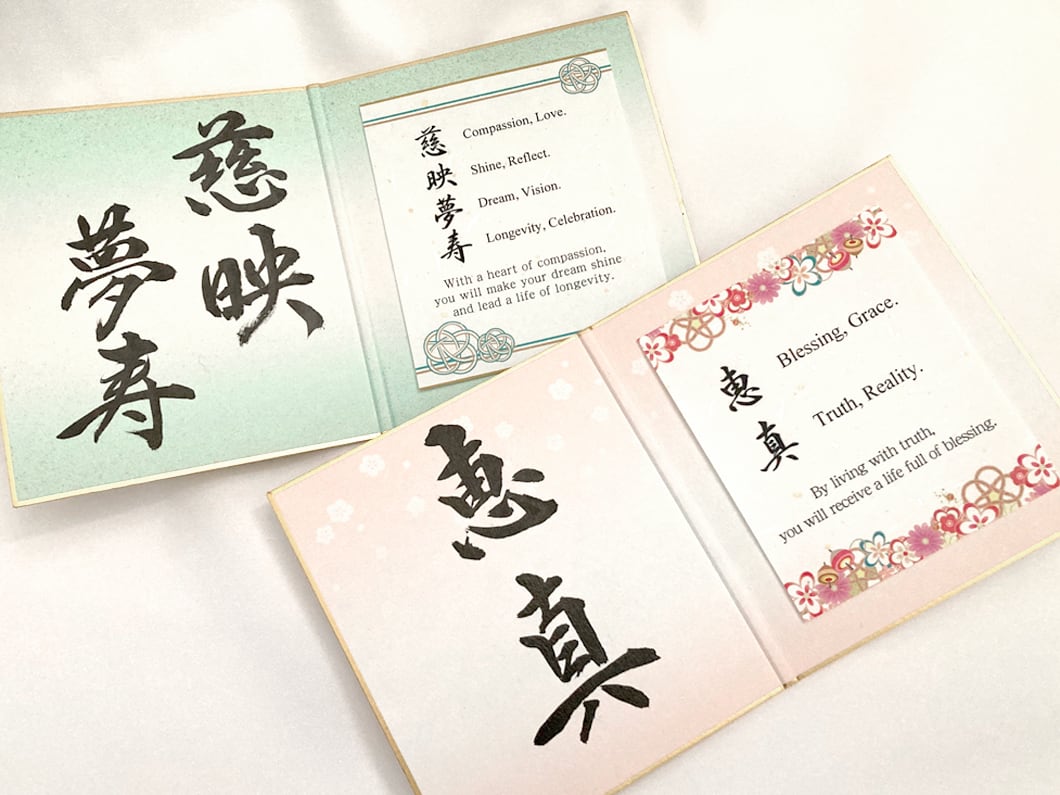 慈映
夢寿
慈 Compassion, Love.
映 Shine, Reflect.
夢 Dream, Vision.
寿 Longevity, Celebration.
With a heart of compassion,
you will make your dream shine
and lead a life of longevity.
恵真
恵 Blessing, Grace.
真 Truth, Reality.
By living with truth,
you will receive a life full of blessing.